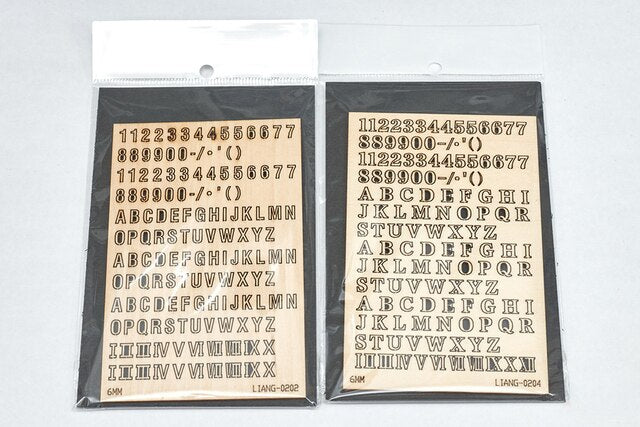 11223344556677
889900-/·'()
11223344556677
889900-/·'()
ABCDEFGHIJKLMN
OPQRSTUVWXYZ
ABCDEFGHIJKLMN
OPQRSTUVWXYZ
ABCDEFGHIJKLMN
OPQRSTUVWXYZ
I II III IV V VI VII VIII IX X
I II III IV V VI VII VIII IX X
6MM LIANG-0202
11223344556677
889900-/·'()
11223344556677
889900-/·'()
ABCDEFGHI
JKLMNOPQR
STUVWXYZ
ABCDEFGHI
JKLMNOPQR
STUVWXYZ
ABCDEFGHI
JKLMNOPQR
STUVWXYZ
6MM LIANG-0204